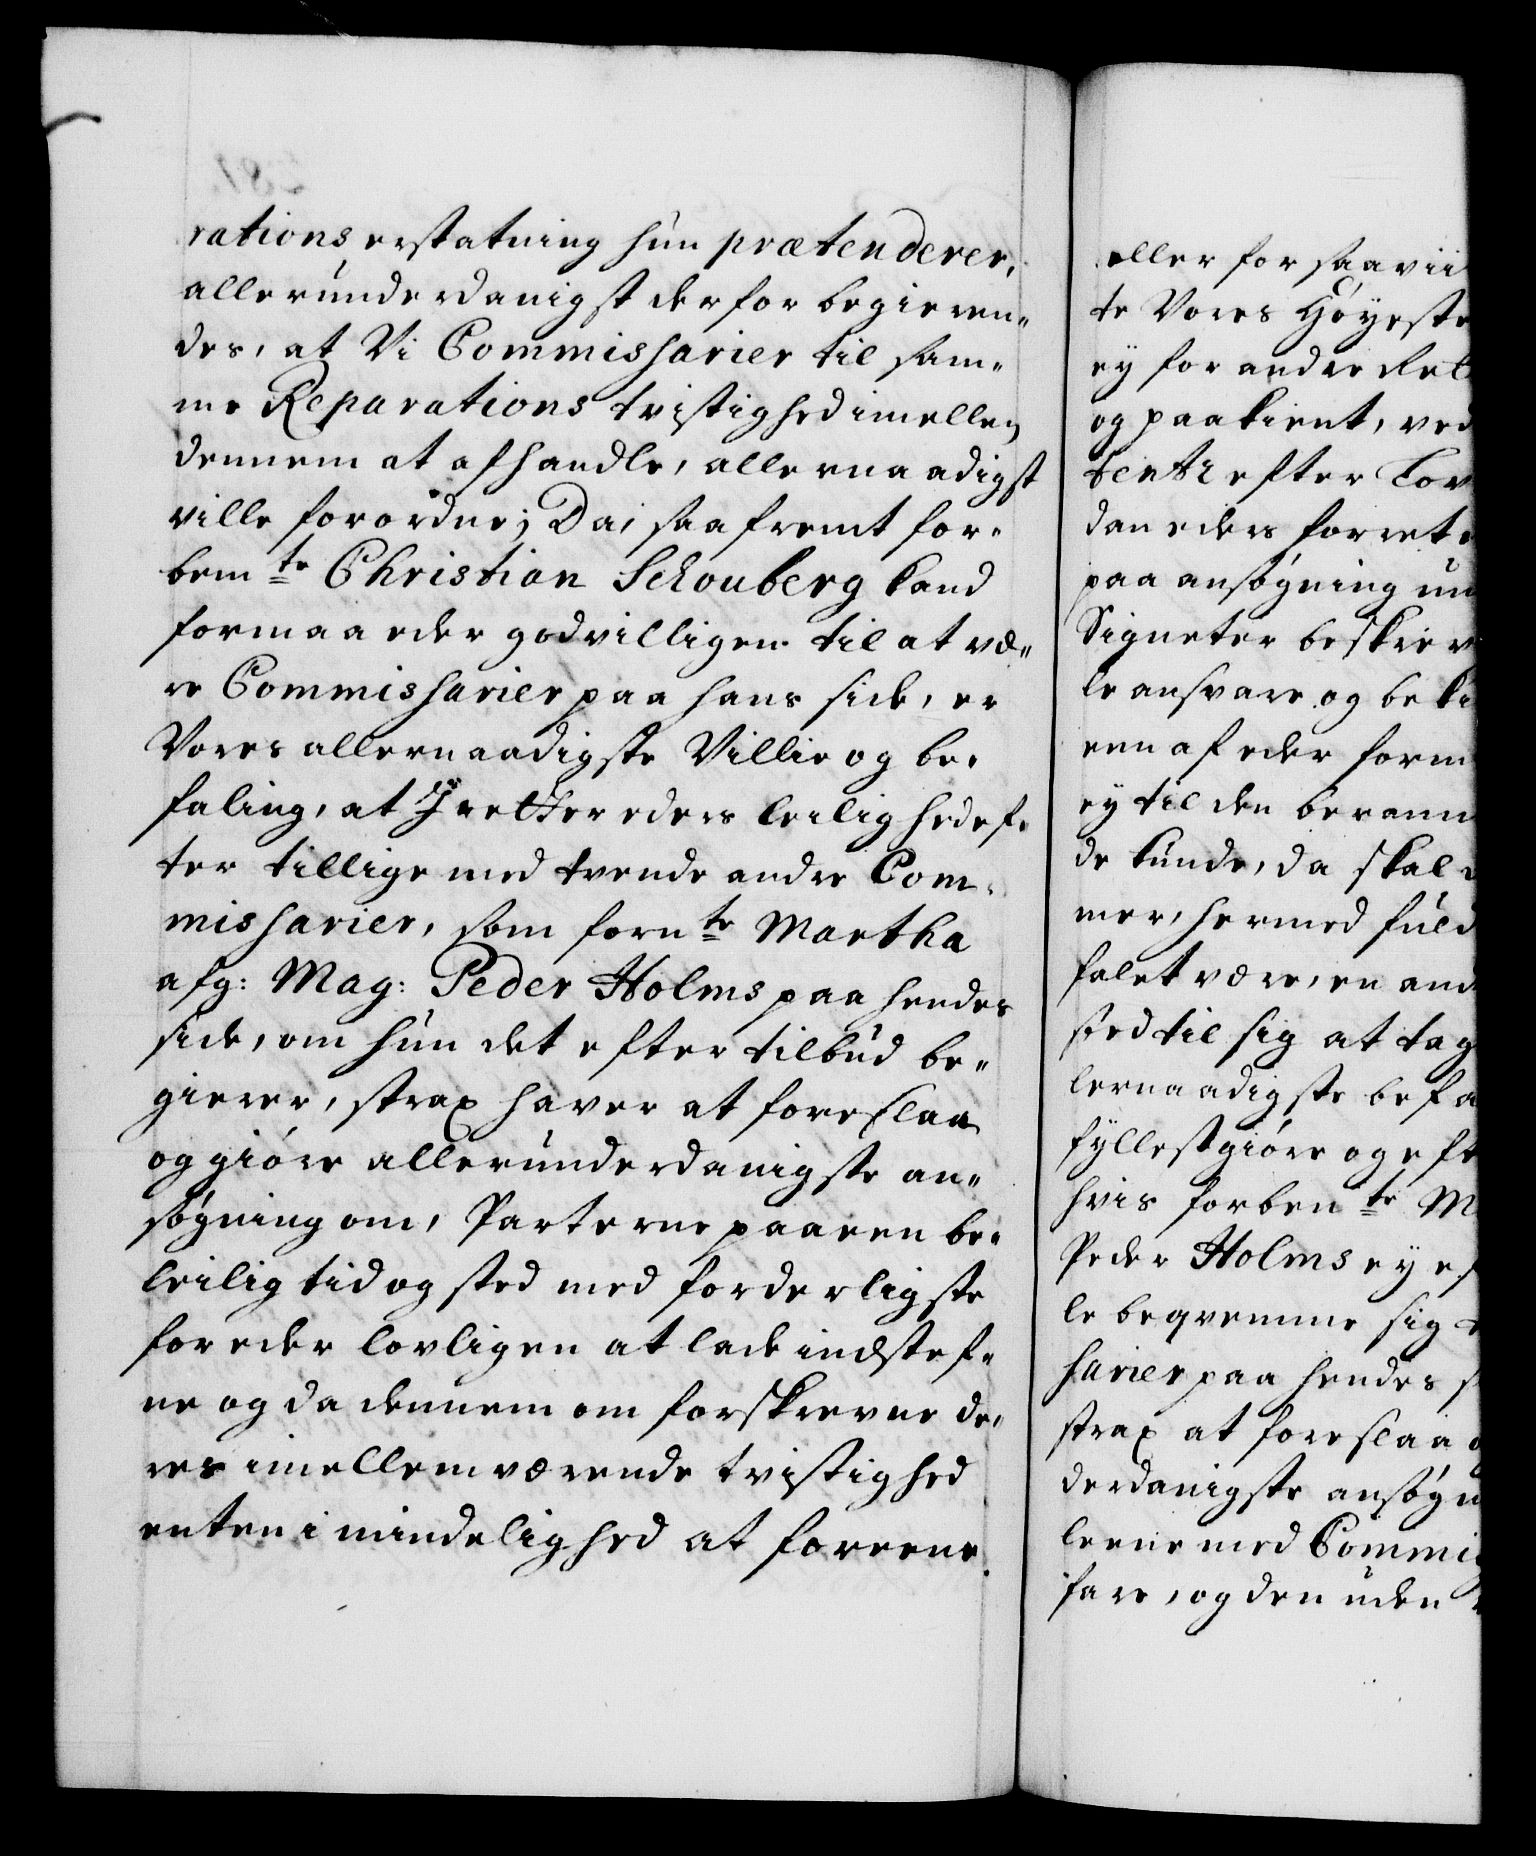 rations erstatning hun prætenderer,
allerunderdanigst derfor begieren„
des, at Vi Commissarier til sam„
me Reparations tvistighed imellem
dennem at afhandle, allernaadigst
ville forordne; Da, saafremt for„
bemte Christian Schouberg kand
formaa eder godvilligen til at væ„
re Commissarier paa hans side, er
Vores allernaadigste Villie og be„
faling, at I retter eders leilighed ef„
ter tillige med tvende andre Com„
missarier, som fornte Martha
afg: Mag: Peder Holms paa hendes
side, om hun det efter tilbud be„
gierer, strax haver at foreslaa
og giöre allerunderdanigste an„
søgning om, Parterne paa en be„
leilig tid og sted med forderligste
for eder lovligen at lade indstef„
ne og da dennem om forskrevne de„
res imellem værende tvistighed
enten i mindelighed at foreene
eller for saa vii
te Vores Höyeste
ey for andre Ret
og paakient, ved
tentz efter Lov
dan eders forret
paa ansøgning un
Signeter beskrev
le ansvare og beki
een af eder form
ey til den beram
de kunde, da skal
mer, hermed fuld
falet være, en and
sted til sig at tag
lernaadigste befa
fyllestgiöre og eft
hvis forbente M
Peder Holms ey ef
le beqvemme sig
sarier paa hendes s
strax at foreslaa o
derdanigste ansøgn
leene med Commis
fare, og den uden